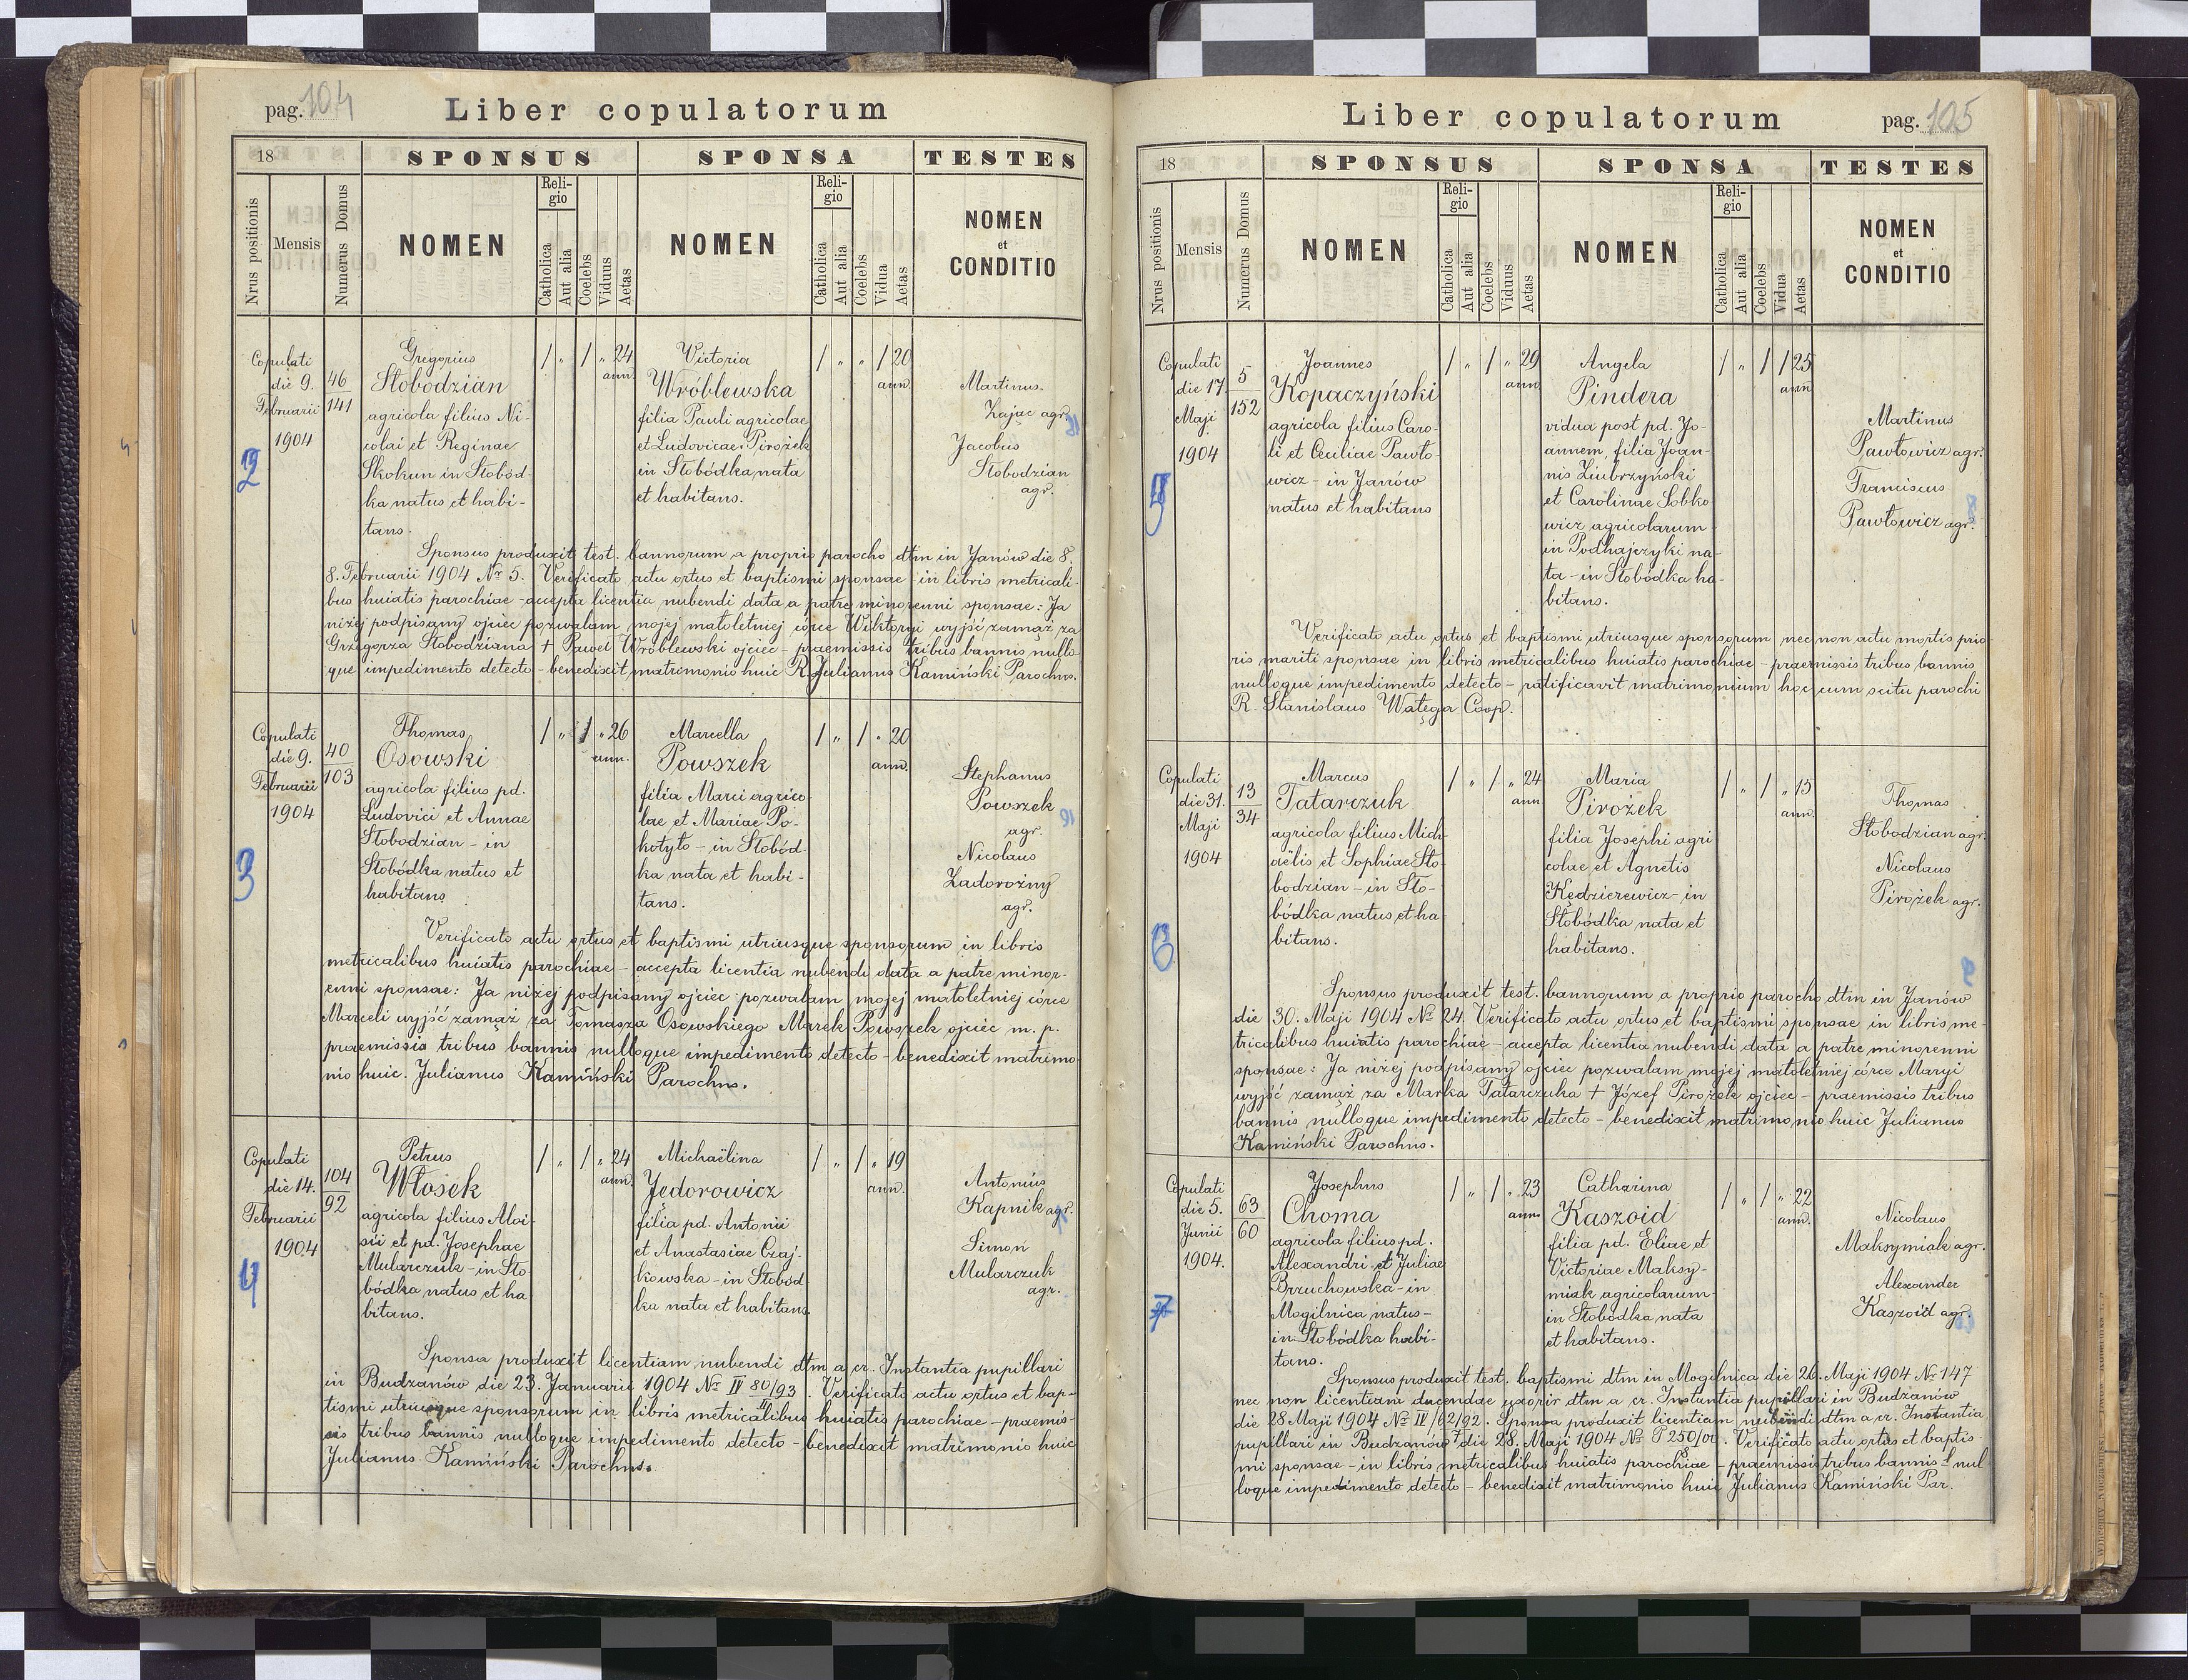 pag. 104
Liber copulatorum
18
SPONSUS
SPONSA
TESTES
Nrus positionis
Mensis
Numerus Domus
NOMEN
Religio
Catholica
Aut alia
Coelebs
Viduus
Aetas
NOMEN
Religio
Catholica
Aut alia
Coelebs
Vidua
Aetas
NOMEN
et
CONDITIO
2
Copulati
die 9.
Februarii
1904
46
141
Gregorius
Słobodzian
agricola filius Ni-
colai et Reginae
Skokun in Słobód-
ka natus et habi-
tans.
/ " / " 24
ann.
Victoria
Wróblewska
filia Pauli agricolae
et Ludovicae Pirożek
in Słobódka nata
et habitans.
/ " " / 20
ann.
Martinus
Zając agr.
Jacobus
Słobodzian
agr.
Sponsus produxit test. bannorum a proprio parocho dtm in Janów die 8.
8. Februarii 1904 Nr 5. Verificato actu ortus et baptismi sponsae in libris metricali-
bus huiatis parochiae - accepta licentia nubendi data a patre minorenni sponsae: Ja
niżej podpisany ojciec pozwalam mojej małoletniej córce Wiktoryi wyjść zamąż za
Grzegorza Słobodziana † Paweł Wróblewski ojciec - praemissis tribus bannis nullo-
que impedimento detecto - benedixit matrimonio huic R. Julianus Kamiński Parochus.
3
Copulati
die 9.
Februarii
1904
40
103
Thomas
Osowski
agricola filius pd.
Ludovici et Annae
Słobodzian - in
Słobódka natus et
habitans
/ " / " 26
ann.
Marcella
Powszek
filia Marci agrico-
lae et Mariae Po-
kotyło - in Słobód-
ka nata et habi-
tans.
/ " / " 20
ann.
Stephanus
Powszek
agr.
Nicolaus
Zadorożny
agr.
Verificato actu ortus et baptismi utriusque sponsorum in libris
metricalibus huiatis parochiae - accepta licentia nubendi data a patre minor-
enni sponsae: Ja niżej podpisany ojciec pozwalam mojej małoletniej córce
Marceli wyjść zamąż za Tomasza Osowskiego Marek Powszek ojciec m. p.
praemissis tribus bannis nulloque impedimento detecto - benedixit matrimo-
nio huic. Julianus Kamiński Parochus.
4
Copulati
die 14.
Februarii
1904
104
92
Petrus
Włosek
agricola filius Aloi-
sii et pd. Josephae
Mularczuk - in Sło-
bódka natus et ha
bitans.
/ " / " 24
ann.
Michaëlina
Jędorowicz
filia pd. Antonii
et Anastasiae Czaj-
kowska - in Słobód
ka nata et habitans
/ " / " 19
ann.
Antonius
Kapnik agr.
Simon
Mularczuk
agr.
Sponsa produxit licentiam nubendi dtm a cr. Instantia pupillari
in Budzanów die 23. Januarii 1904 Nr IV 80/93 . Verificato actu ortus et bap-
II
tismi utriusque sponsorum in libris metricalibus huiatis parochiae - praemis-
sis tribus bannis nulloque impedimento detecto - benedixit matrimonio huic
Julianus Kamiński Parochus.
Liber copulatorum
pag. 105
18
SPONSUS
SPONSA
TESTES
Nrus positionis
Mensis
Numerus Domus
NOMEN
Religio
Catholica
Aut alia
Coelebs
Viduus
Aetas
NOMEN
Religio
Catholica
Aut alia
Coelebs
Vidua
Aetas
NOMEN
et
CONDITIO
5
Copulati
die 17.
Maji
1904
5
152
Joannes
Kopaczyński
agricola filius Caro-
li et Ceciliae Pawło-
wicz - in Janów
natus et habitans
/ " / " 29
ann.
Angela
Pindera
vidua post pd. Jo-
annem, filia Joan-
nis Ziubrzyński
et Carolinae Sobko
wicz agricolarum
in Podhajczyki na-
ta - in Słobódka ha-
bitans.
/ " / / 25
ann.
Martinus
Pawłowicz agr.
Franciscus
Pawłowicz agr.
Verificato actu ortus et baptismi utriusque sponsorum nec non actu mortis prio
ris mariti sponsae in libris metricalibus huiatis parochiae - praemissis tribus bannis
nulloque impedimento detecto - ratificavit matrimonium hoc cum scitu parochi
R. Stanislaus Wałęga Coop.
6
Copulati
die 31.
Maji
1904
13
34
Marcus
Tatarczuk
agricola filius Mich-
aëlis et Sophiae Sło-
bodzian - in Sło-
bódka natus et ha-
bitans.
/ " / " 24
ann
Maria
Pirożek
filia Josephi agri
colae et Agnetis
Kędzierewicz - in
Słobódka nata et
habitans.
/ " / " 15
ann.
Thomas
Słobodzian agr.
Nicolaus
Pirożek agr.
Sponsus produxit test. bannorum a proprio parocho dtm in Janów
die 30. Maji 1904 Nr 24. Verificato actu ortus et baptismi sponsae in libris me-
tricalibus huiatis parochiae - accepta licentia nubendi data a patre minorenni
sponsae: Ja niżej podpisany ojciec pozwalam mojej małoletniej córce Maryi
wyjść zamąż za Marka Tatarczuka † Józef Pirożek ojciec - praemissis tribus
bannis nulloque impedimento detecto - benedixit matrimonio huic Julianus
Kamiński Parochus.
7
Copulati
die 5.
Junii
1904.
63
60
Josephus
Choma
agricola filius pd.
Alexandri et Juliae
Brzuchowska - in
Mogilnica natus -
in Słobódka habi-
tans.
/ " / " 23
ann.
Catharina
Kaszoid
filia pd. Eliae et
Victoriae Maksy-
miak agricolarum
in Słobódka nata
et habitans.
/ " / " 22
ann.
Nicolaus
Maksymiak agr.
Alexander
Kaszoid agr.
Sponsus produxit test. baptismi dtm in Mogilnica die 26. Maji 1904 Nr 147
nec non licentiam ducendae uxoris dtm a cr. Instantia pupillari in Budzanów
die 28 Maji 1904 Nr IV 62/92. Sponsa produxit licentiam nubendi dtm a cr. Instantia
pupillari in Budzanów die 28. Maji 1904 Nr P 250/00 . Verificato actu ortus et baptis-
8
mi sponsae - in libris metricalibus huiatis parochiae - praemissis tribus bannis nul-
loque impedimento detecto - benedixit matrimonio huic Julianus Kamiński Par.